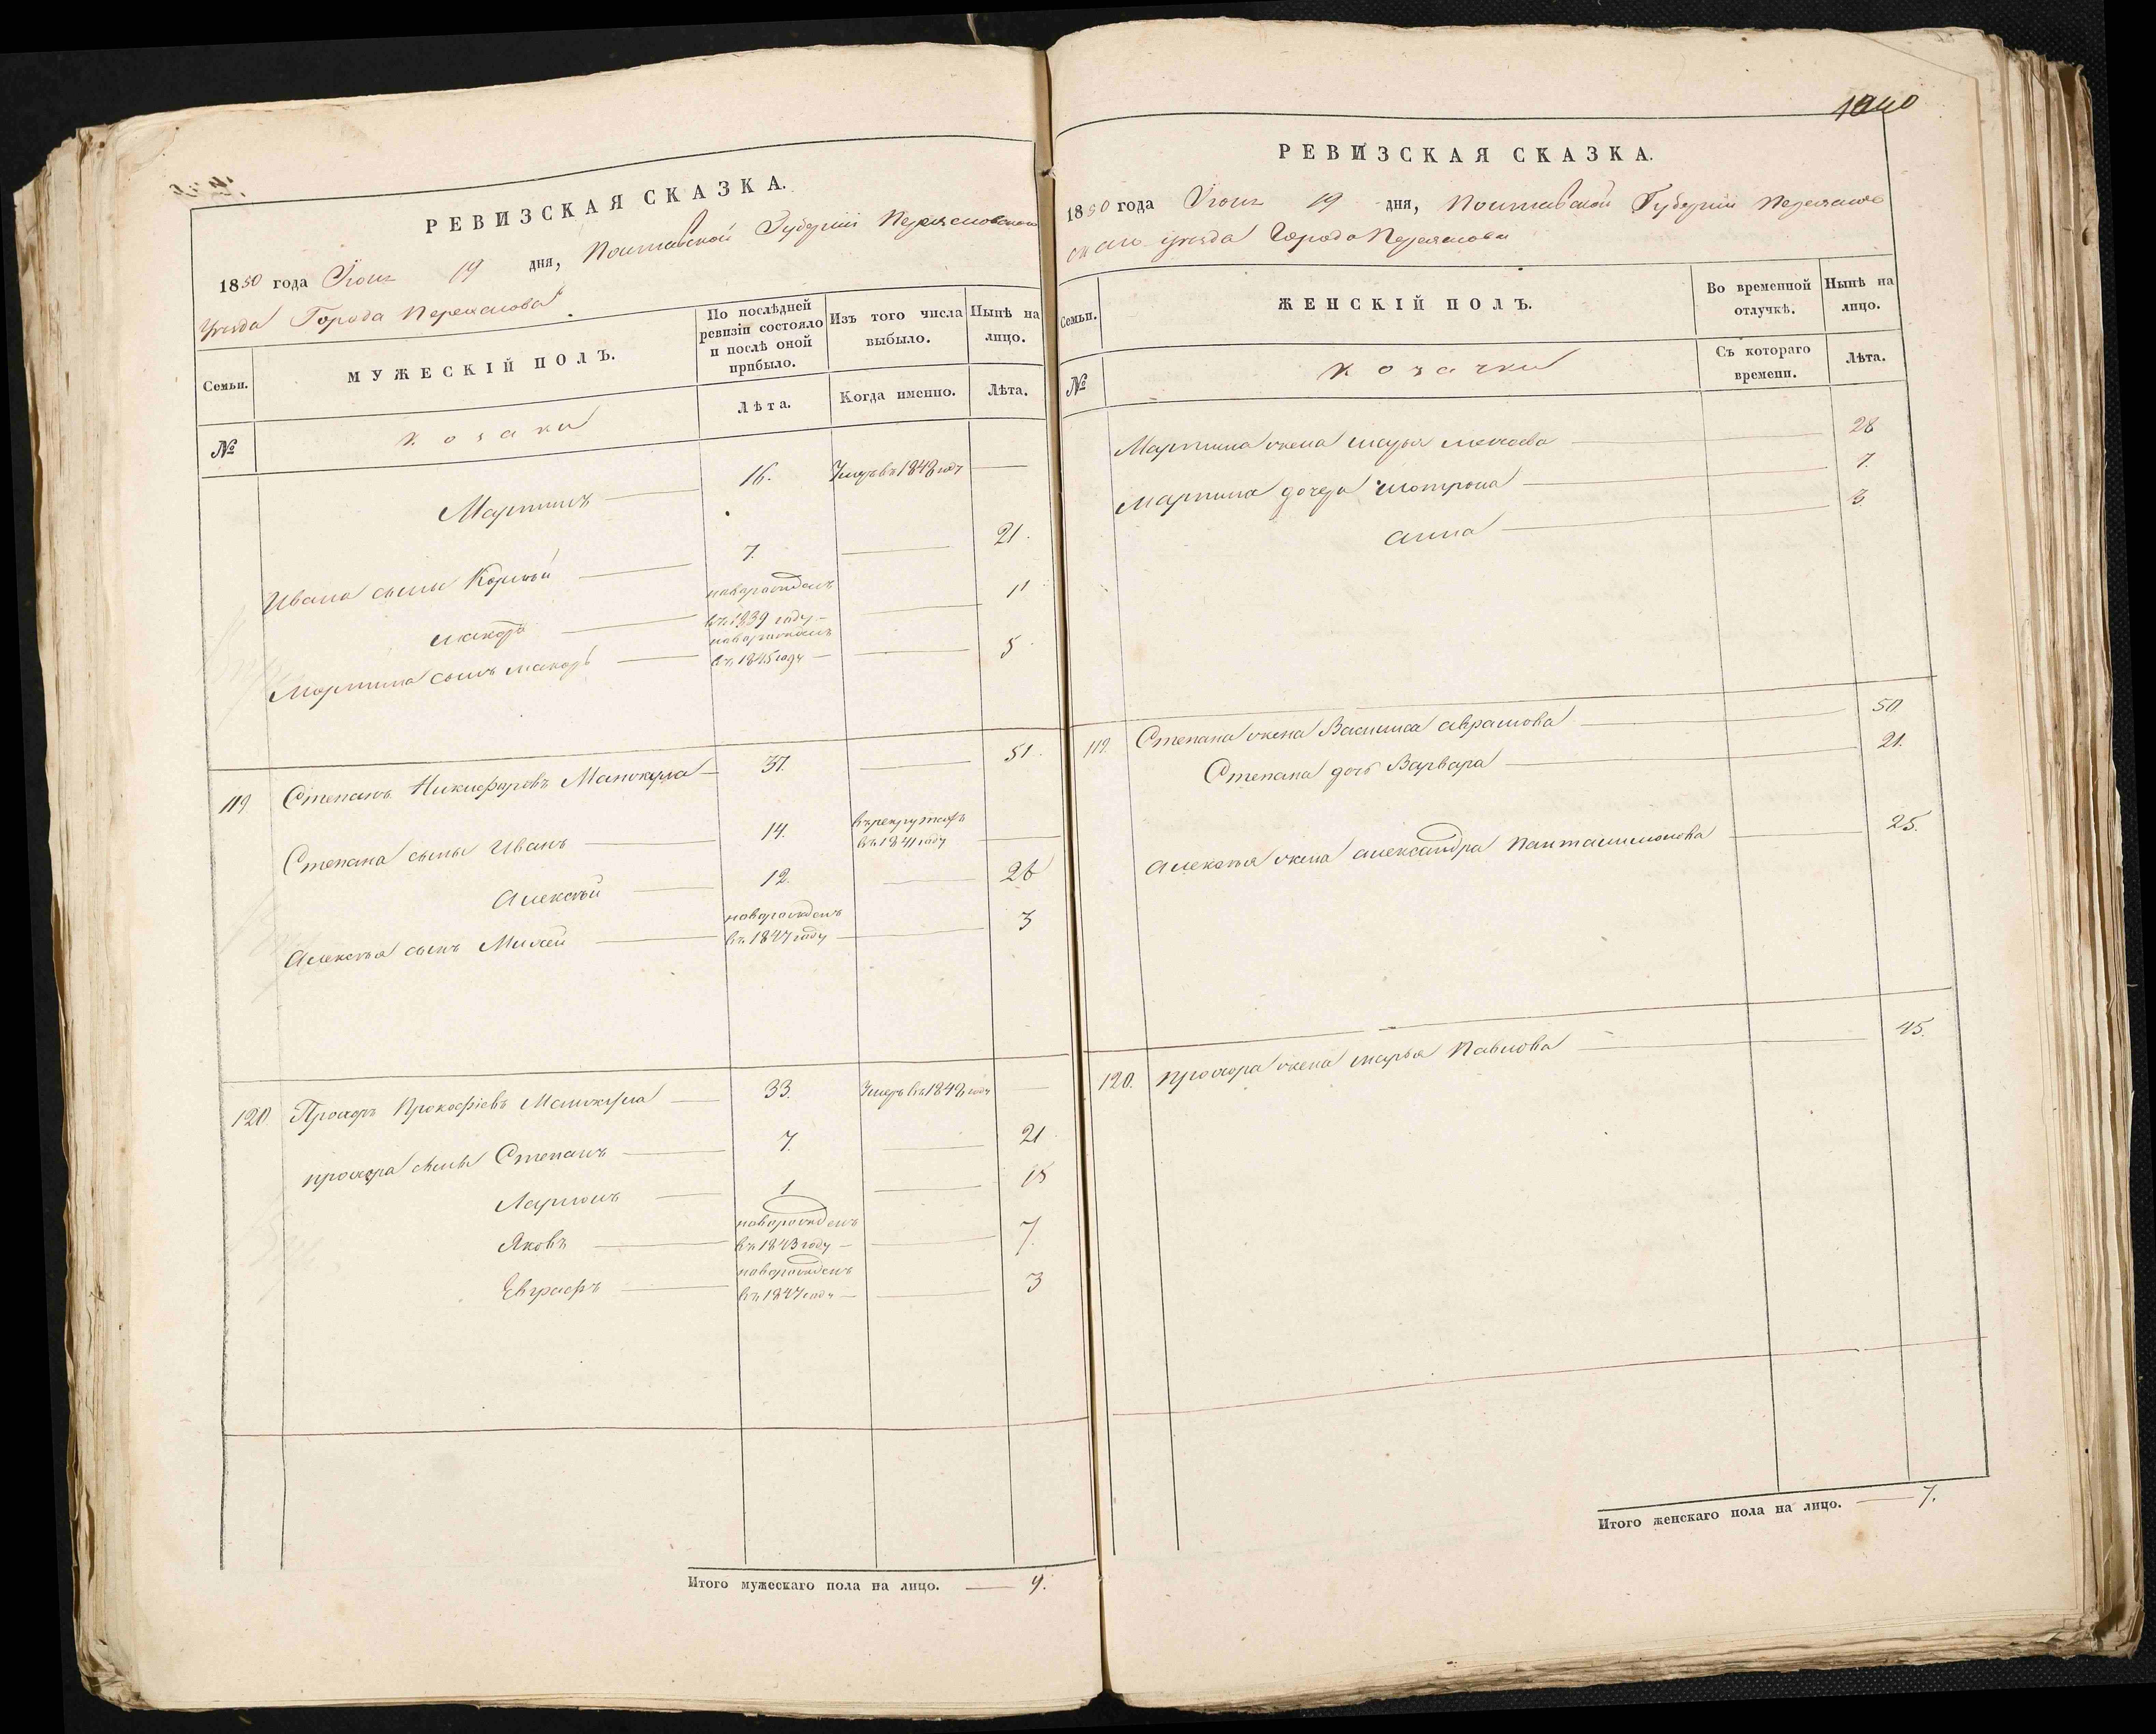 РЕВИЗСКАЯ СКАЗКА.
1850 года Июня 19 дня, Полтавской Губерніи Переяславскаго
Уезда Города Переяслова
Семьи.
МУЖЕСКІЙ ПОЛЪ.
По послѣдней ревизіи состояло и послѣ оной прибыло.
Изъ того числа выбыло.
Нынѣ на лицо.
№
козаки
Лѣта.
Когда именно.
Лѣта.
Мартинъ 16. Умеръ въ 1848 году
Ивана сыны Корнѣй 7. 21.
новорожденъ
въ 1839 году 11
новорожденъ
Мартина сынъ Макаръ въ 1845 году 5
119 Степанъ Никифоровъ Манжула 37. 51.
Степана сыны Иванъ 14. въ рекрутахъ
въ 1841 году
Алексѣй 12. 26
новорожденъ
Алексѣя сынъ Михей въ 1847 году 3
120 Прохоръ Прокофіевъ Манжула 33. Умеръ въ 1848 году
Прохора сыны Степанъ 7. 21
Ларіонъ 1 15
новорожденъ
Яковъ въ 1843 году 7.
новорожденъ
Евграфъ въ 1847 году 3
Итого мужескаго пола на лицо. 9.
1040
РЕВИЗСКАЯ СКАЗКА.
1850 года Июня 19 дня, Полтавской Губерніи Переяслов
скаго уезда Города Переяслова
Семьи.
ЖЕНСКІЙ ПОЛЪ.
Во временной отлучкѣ.
Нынѣ на лицо.
№
козачки
Съ котораго времени.
Лѣта.
Мартина жена Марья 28
Мартина дочери Мотрона 7.
Анна 3.
119. Степана жена Василиса Абрамова 50
Степана дочь Варвара 21.
Алексѣя жена Александра Панталимонова 25.
120. Прохора жена Марья Павлова 45.
Итого женскаго пола на лицо. 7.